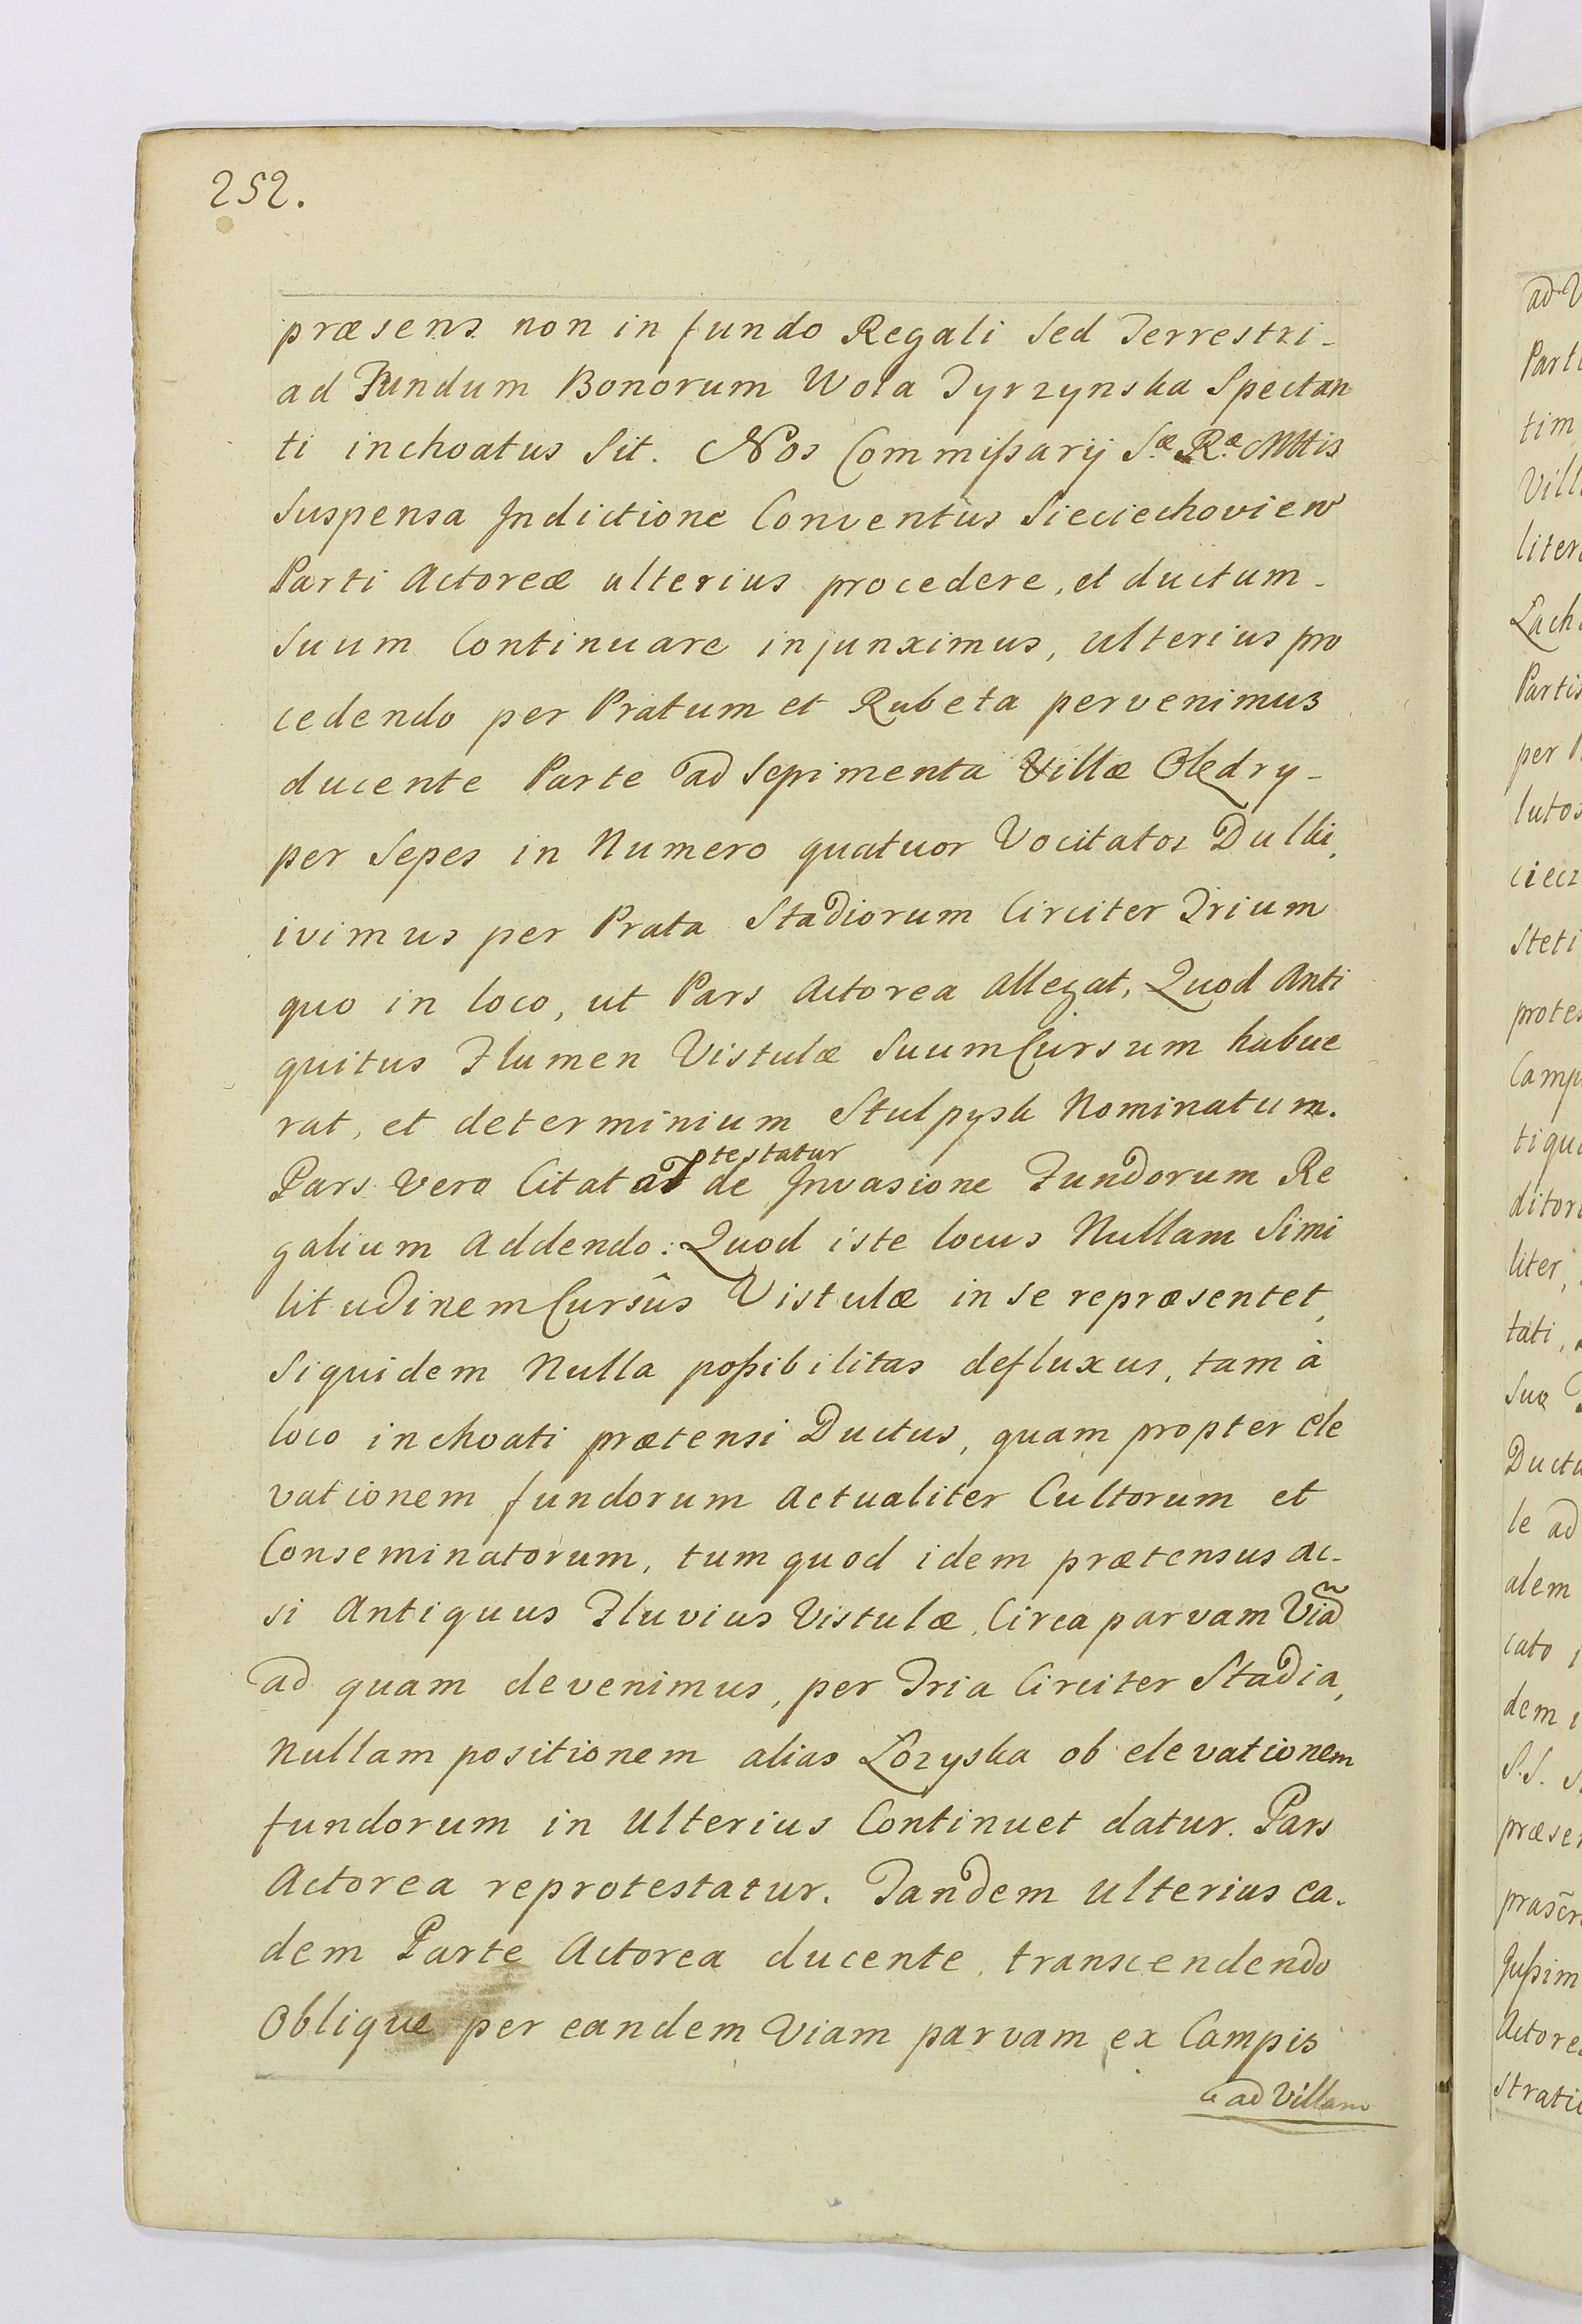 252.
præsens non in fundo Regali sed Terrestri_
ad Fundum Bonorum Wola Tyrzynska Spectan
ti inchoatus sit. Nos Commißarij S.æ R.æ Mttis
suspensa Indictione Conventus Sieciechoview
Parti Actoreæ ulterius procedere, et ductum_
suum Continuare injunximus, ulterius pro
cedendo per Pratum et Rubeta pervenimus
ducente Parte ad Sepimenta Villæ Olędry_
per Sepes in Numero quatuor Vocitatos Dulki,
ivimus per Prata Stadiorum Circiter Trium
quo in loco, ut Pars Actorea allegat, Quod Anti
quitus Flumen Vistulæ suum Cursum habue
rat, et determinium Stulpysk Nominatum.
testatur
Pars vero Citata de Invasione Fundorum Re
galium Addendo: Quod iste locus Nullam Simi
litudinem Cursûs Vistulæ in se repræsentet,
siquidem Nulla poßibilitas defluxus, tam à
loco inchoati prætensi Ductus, quam propter ele
vationem fundorum actualiter Cultorum et
Conseminatorum, tum quod idem prætensus ac_
si Antiquus Fluvius Vistulæ, Circa parvam Viã
ad quam devenimus, per Tria Circiter Stadia,
Nullam positionem alias Łozyska ob elevationem
fundorum in Ulterius Continuet datur. Pars
Actorea reprotestatur. Tandem ulterius ea_
dem Parte Actorea ducente, transcendendo
Oblique per eandem Viam parvam ex Campis
ad Villam
ad V
Parti
tim
Villa
litera
Lach
Partis
per
lutos
ciecz
steti
protes
Camp
tiqu
ditor
liter,
tati,
sua
Ductu
le ad
alem
cato
dem
S.S.
præse
Jußim
Actore
strati